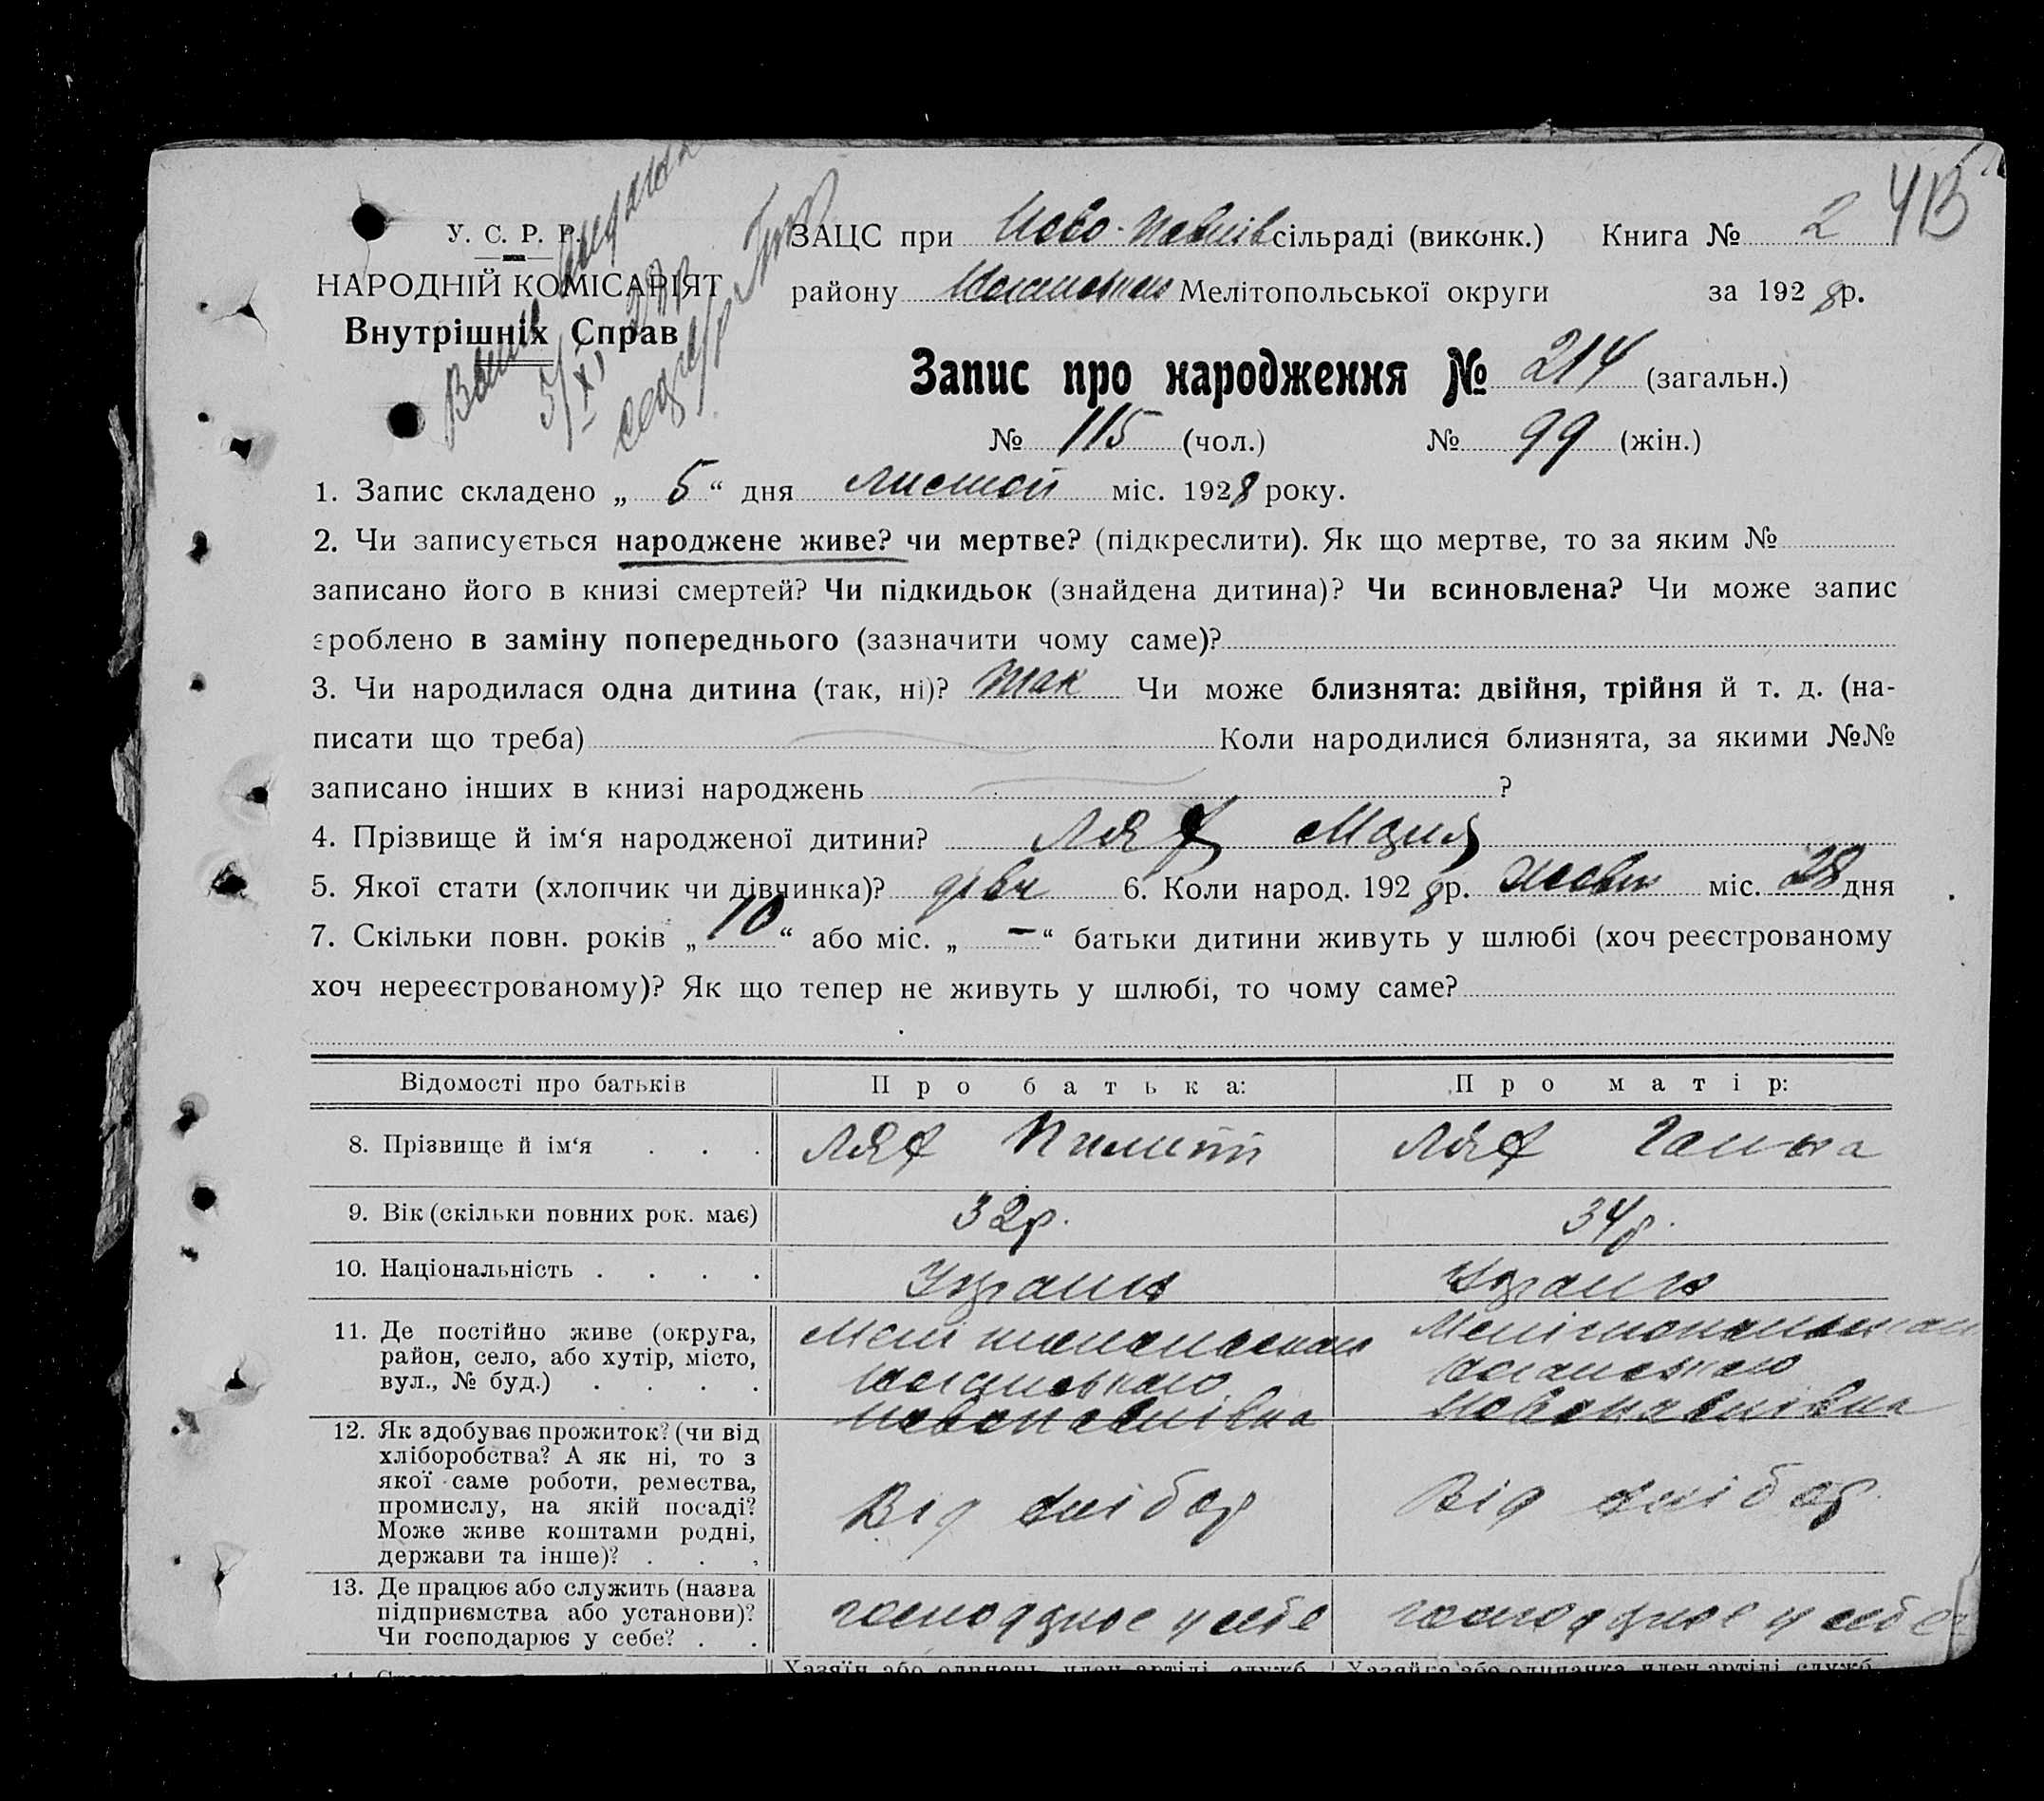 415
У. С. Р. Р.
НАРОДНІЙ КОМІСАРІЯТ
Внутрішніх Справ
ЗАЦС при Ново-Павлів сільраді (виконк.) Книга № 2
району Мелітопольської округи за 1928 р.
Запис про народження № 214 (загальн.)
№ 115 (чол.) № 99 (жін.)
1. Запис складено „ 5 “ дня листоп міс. 1928 року.
2. Чи записується народжене живе? чи мертве? (підкреслити). Як що мертве, то за яким №
записано його в книзі смертей? Чи підкидьок (знайдена дитина)? Чи всиновлена? Чи може запис
зроблено в заміну попереднього (зазначити чому саме)?
3. Чи народилася одна дитина (так, ні)? так Чи може близнята: двійня, трійня й т. д. (на-
писати що треба) Коли народилися близнята, за якими №№
записано інших в книзі народжень ?
4. Прізвище й ім‘я народженої дитини? Лях Марія
5. Якої стати (хлопчик чи дівчинка)? дівч 6. Коли народ. 1928 р. жовт міс. 28 дня
7. Скільки повн. років „ 10 “ або міс. „ – “ батьки дитини живуть у шлюбі (хоч реєстрованому
хоч нереєстрованому)? Як що тепер не живуть у шлюбі, то чому саме?
Відомості про батьків Про батька: Про матір:
8. Прізвище й ім‘я . . . Лях Пилипп Лях Ганна
9. Вік (скільки повних рок. має) 32р. 34р.
10. Національність . . . . Україн Україн
11. Де постійно живе (округа,
район, село, або хутір, місто,
вул., № буд.) . . . .
Мелітопольськой
Новопавлівка
Мелітопольськой
Новопавлівка
12. Як здобуває прожиток? (чи від
хліборобства? А як ні, то з
якої саме роботи, ремества,
промислу, на якій посаді?
Може живе коштами родні,
держави та інше)? . . .
Від хлібор
Від хлібор.
13. Де працює або служить (назва
підприємства або установи)?
Чи господарює у себе? . .
господарює у себе
господарює у себе
Хазяїн або одинець, член артілі, служб.
Хазяйка або одиначка, член артілі, служб.